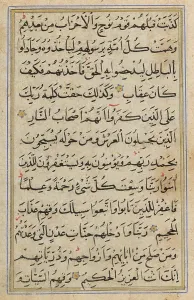 كَذَّبَتْ قَبْلَهُمْ قَوْمُ نُوحٍ وَالْأَحْزَابُ مِنْ بَعْدِهِمْ
وَهَمَّتْ كُلُّ أُمَّةٍ بِرَسُولِهِمْ لِيَأْخُذُوهُ وَجَادَلُوا
بِالْبَاطِلِ لِيُدْحِضُوا بِهِ الْحَقَّ فَأَخَذْتُهُمْ فَكَيْفَ
كَانَ عِقَابِ وَكَذَلِكَ حَقَّتْ كَلِمَةُ رَبِّكَ
عَلَى الَّذِينَ كَفَرُوا أَنَّهُمْ أَصْحَابُ النَّارِ
الَّذِينَ يَحْمِلُونَ الْعَرْشَ وَمَنْ حَوْلَهُ يُسَبِّحُونَ
بِحَمْدِ رَبِّهِمْ وَيُؤْمِنُونَ بِهِ وَيَسْتَغْفِرُونَ لِلَّذِينَ
آمَنُوا رَبَّنَا وَسِعْتَ كُلَّ شَيْءٍ رَحْمَةً وَعِلْمًا
فَاغْفِرْ لِلَّذِينَ تَابُوا وَاتَّبَعُوا سَبِيلَكَ وَقِهِمْ عَذَابَ
الْجَحِيمِ رَبَّنَا وَأَدْخِلْهُمْ جَنَّاتِ عَدْنٍ الَّتِي وَعَدْتَهُمْ
وَمَنْ صَلَحَ مِنْ آبَائِهِمْ وَأَزْوَاجِهِمْ وَذُرِّيَّاتِهِمْ
إِنَّكَ أَنْتَ الْعَزِيزُ الْحَكِيمُ وَقِهِمُ السَّيِّئَاتِ